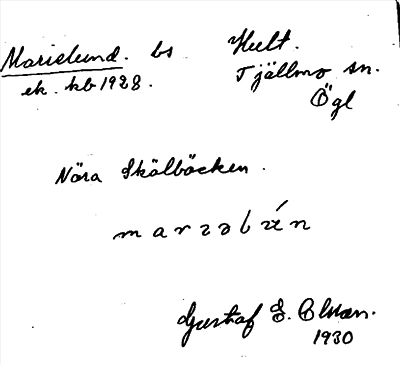 Marielund. bs Hult.
ek. kb 1928. Tjällmo sn.
Ögl
Nära Skölbäcken.
Gustaf E. Olsson.
1930